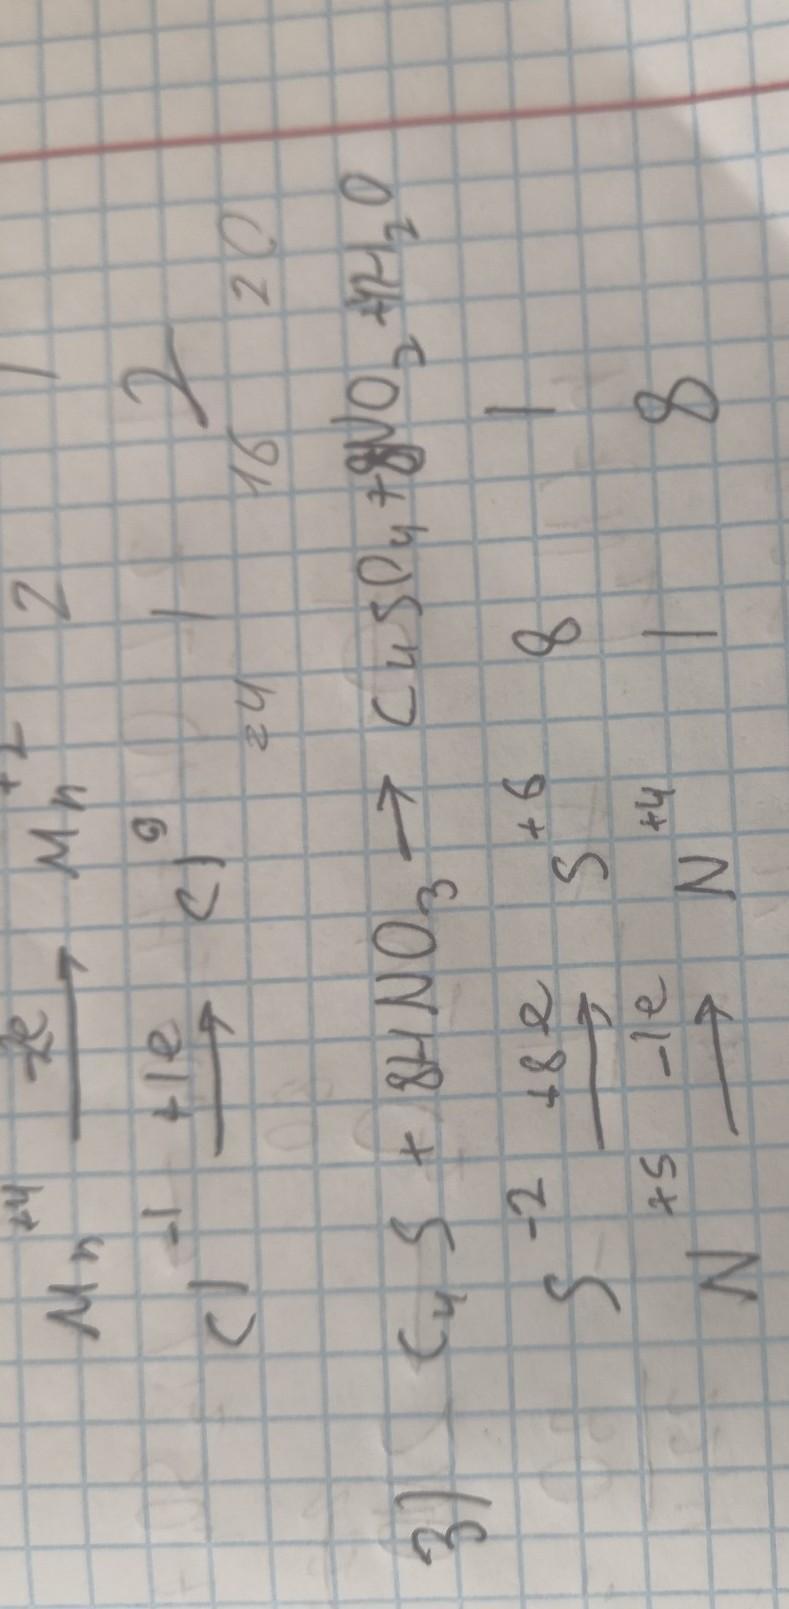 1
Mn +4 2e → Mn +2 2
Cl -1 +1e → Cl 0 1 2
24 16 20
3) CuS + 8HNO3 → CuSO4 + 8NO2 + 4H2O
S -2 +8e → S +6 8 1
N +5 -1e → N +4 1 8